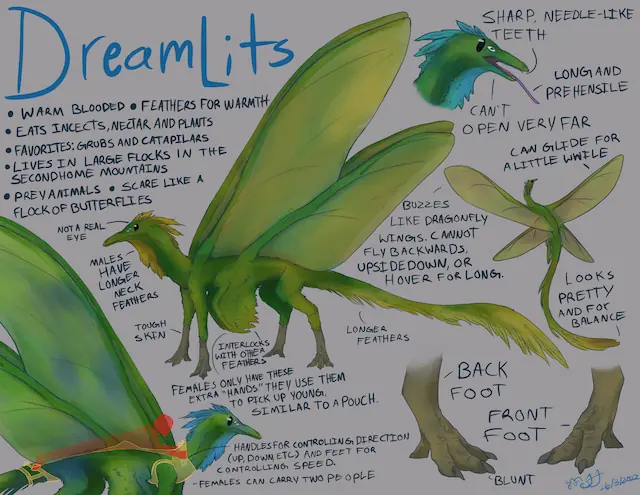 DreamLits
• WARM BLOODED • FEATHERS FOR WARMTH
• EATS INCECTS, NECTAR AND PLANTS
• FAVORITES: GRUBS AND CATAPILARS
• LIVES IN LARGE FLOCKS IN THE
SECONDHOME MOUNTAINS
• PREY ANIMALS • SCARE LIKE A
FLOCK OF BUTTERFLIES
SHARP, NEEDLE-LIKE
TEETH
LONG AND
PREHENSILE
CAN'T
OPEN VERY FAR
CAN GLIDE FOR
A LITTLE WHILE
BUZZES
LIKE DRAGONFLY
WINGS, CANNOT
FLY BACKWARDS,
UPSIDEDOWN, OR
HOVER FOR LONG.
LOOKS
PRETTY
AND FOR
BALANCE
NOT A REAL
EYE
MALES
HAVE
LONGER
NECK
FEATHERS
TOUGH
SKIN
INTERLOCKS
WITH OTHER
FEATHERS
LONGER
FEATHERS
FEMALES ONLY HAVE THESE
EXTRA "HANDS." THEY USE THEM
TO PICK UP YOUNG,
SIMILAR TO A POUCH.
HANDLES FOR CONTROLLING DIRECTION
(UP, DOWN, ETC) AND FEET FOR
CONTROLLING SPEED.
-FEMALES CAN CARRY TWO PEOPLE
BACK
FOOT
FRONT
FOOT
BLUNT